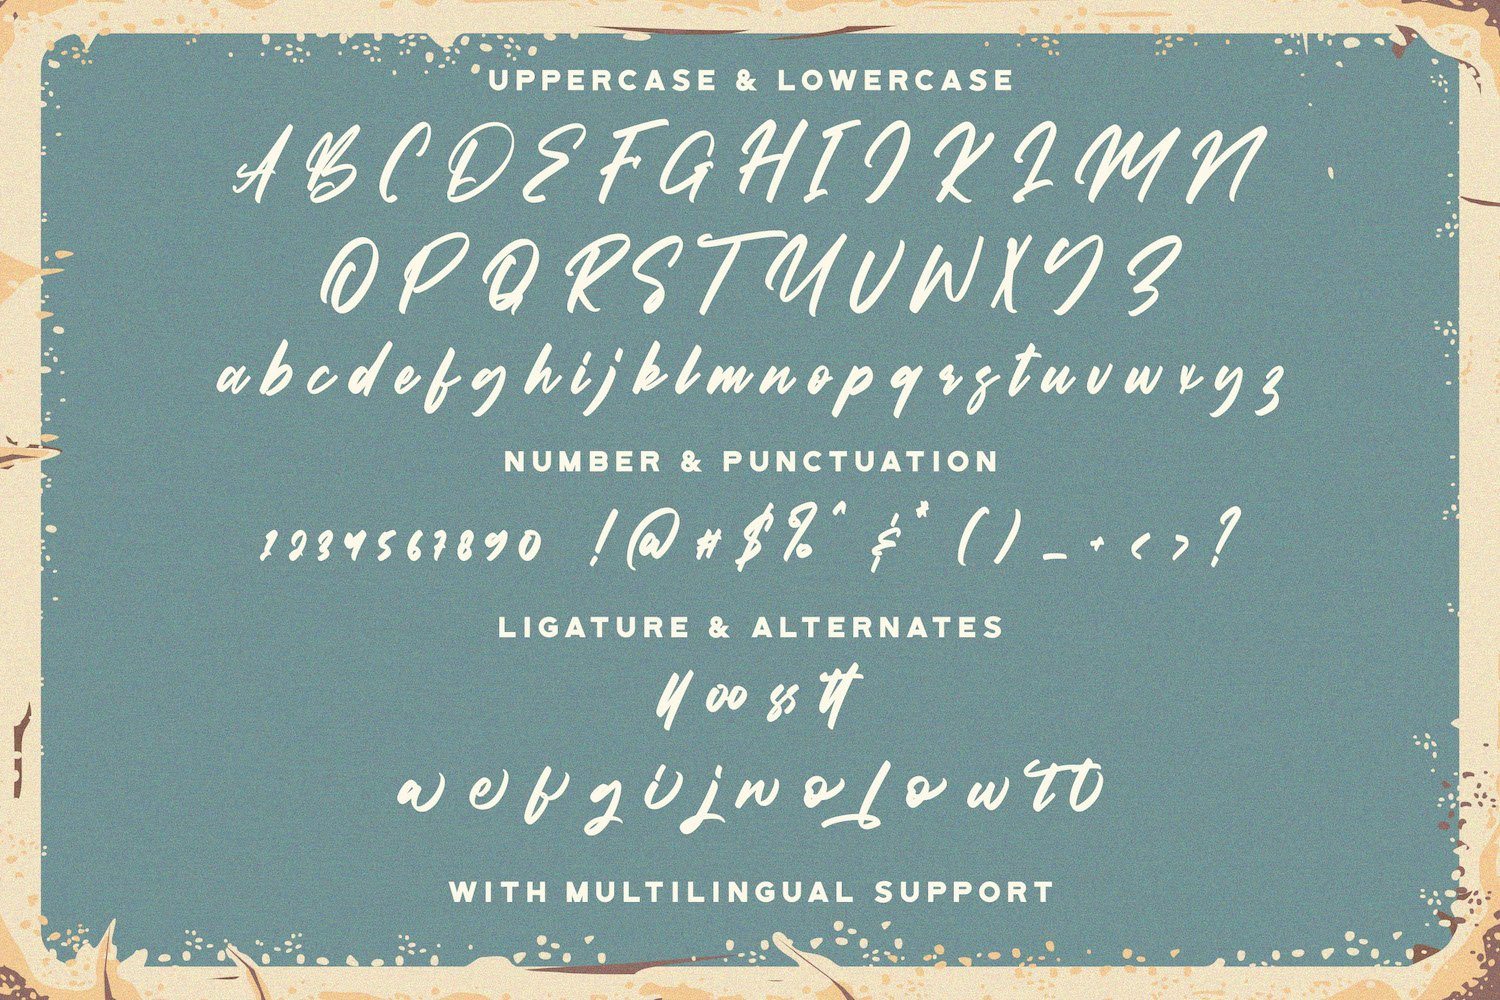 UPPERCASE & LOWERCASE
ABCDEFGHIJKLMN
OPQRSTUVWXYZ
abcdefghijklmnopqrstuvwxyz
NUMBER & PUNCTUATION
1234567890 !@#$%^&*()_+<>?
LIGATURE & ALTERNATES
ll oo ss tt
WITH MULTILINGUAL SUPPORT